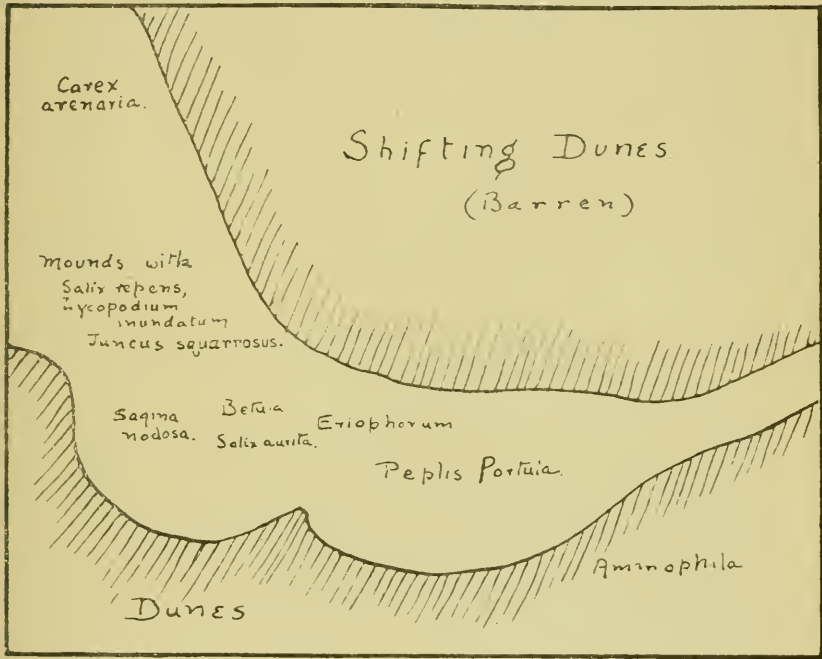 Carex
arenaria.
Shifting Dunes
(Barren)
Mounds with
Salix repens,
Lycopodium
inundatum
Juncus squarrosus.
Sagina
nodosa.
Betula
Salix aurita.
Eriophorum
Peplis Portula.
Ammophila
Dunes